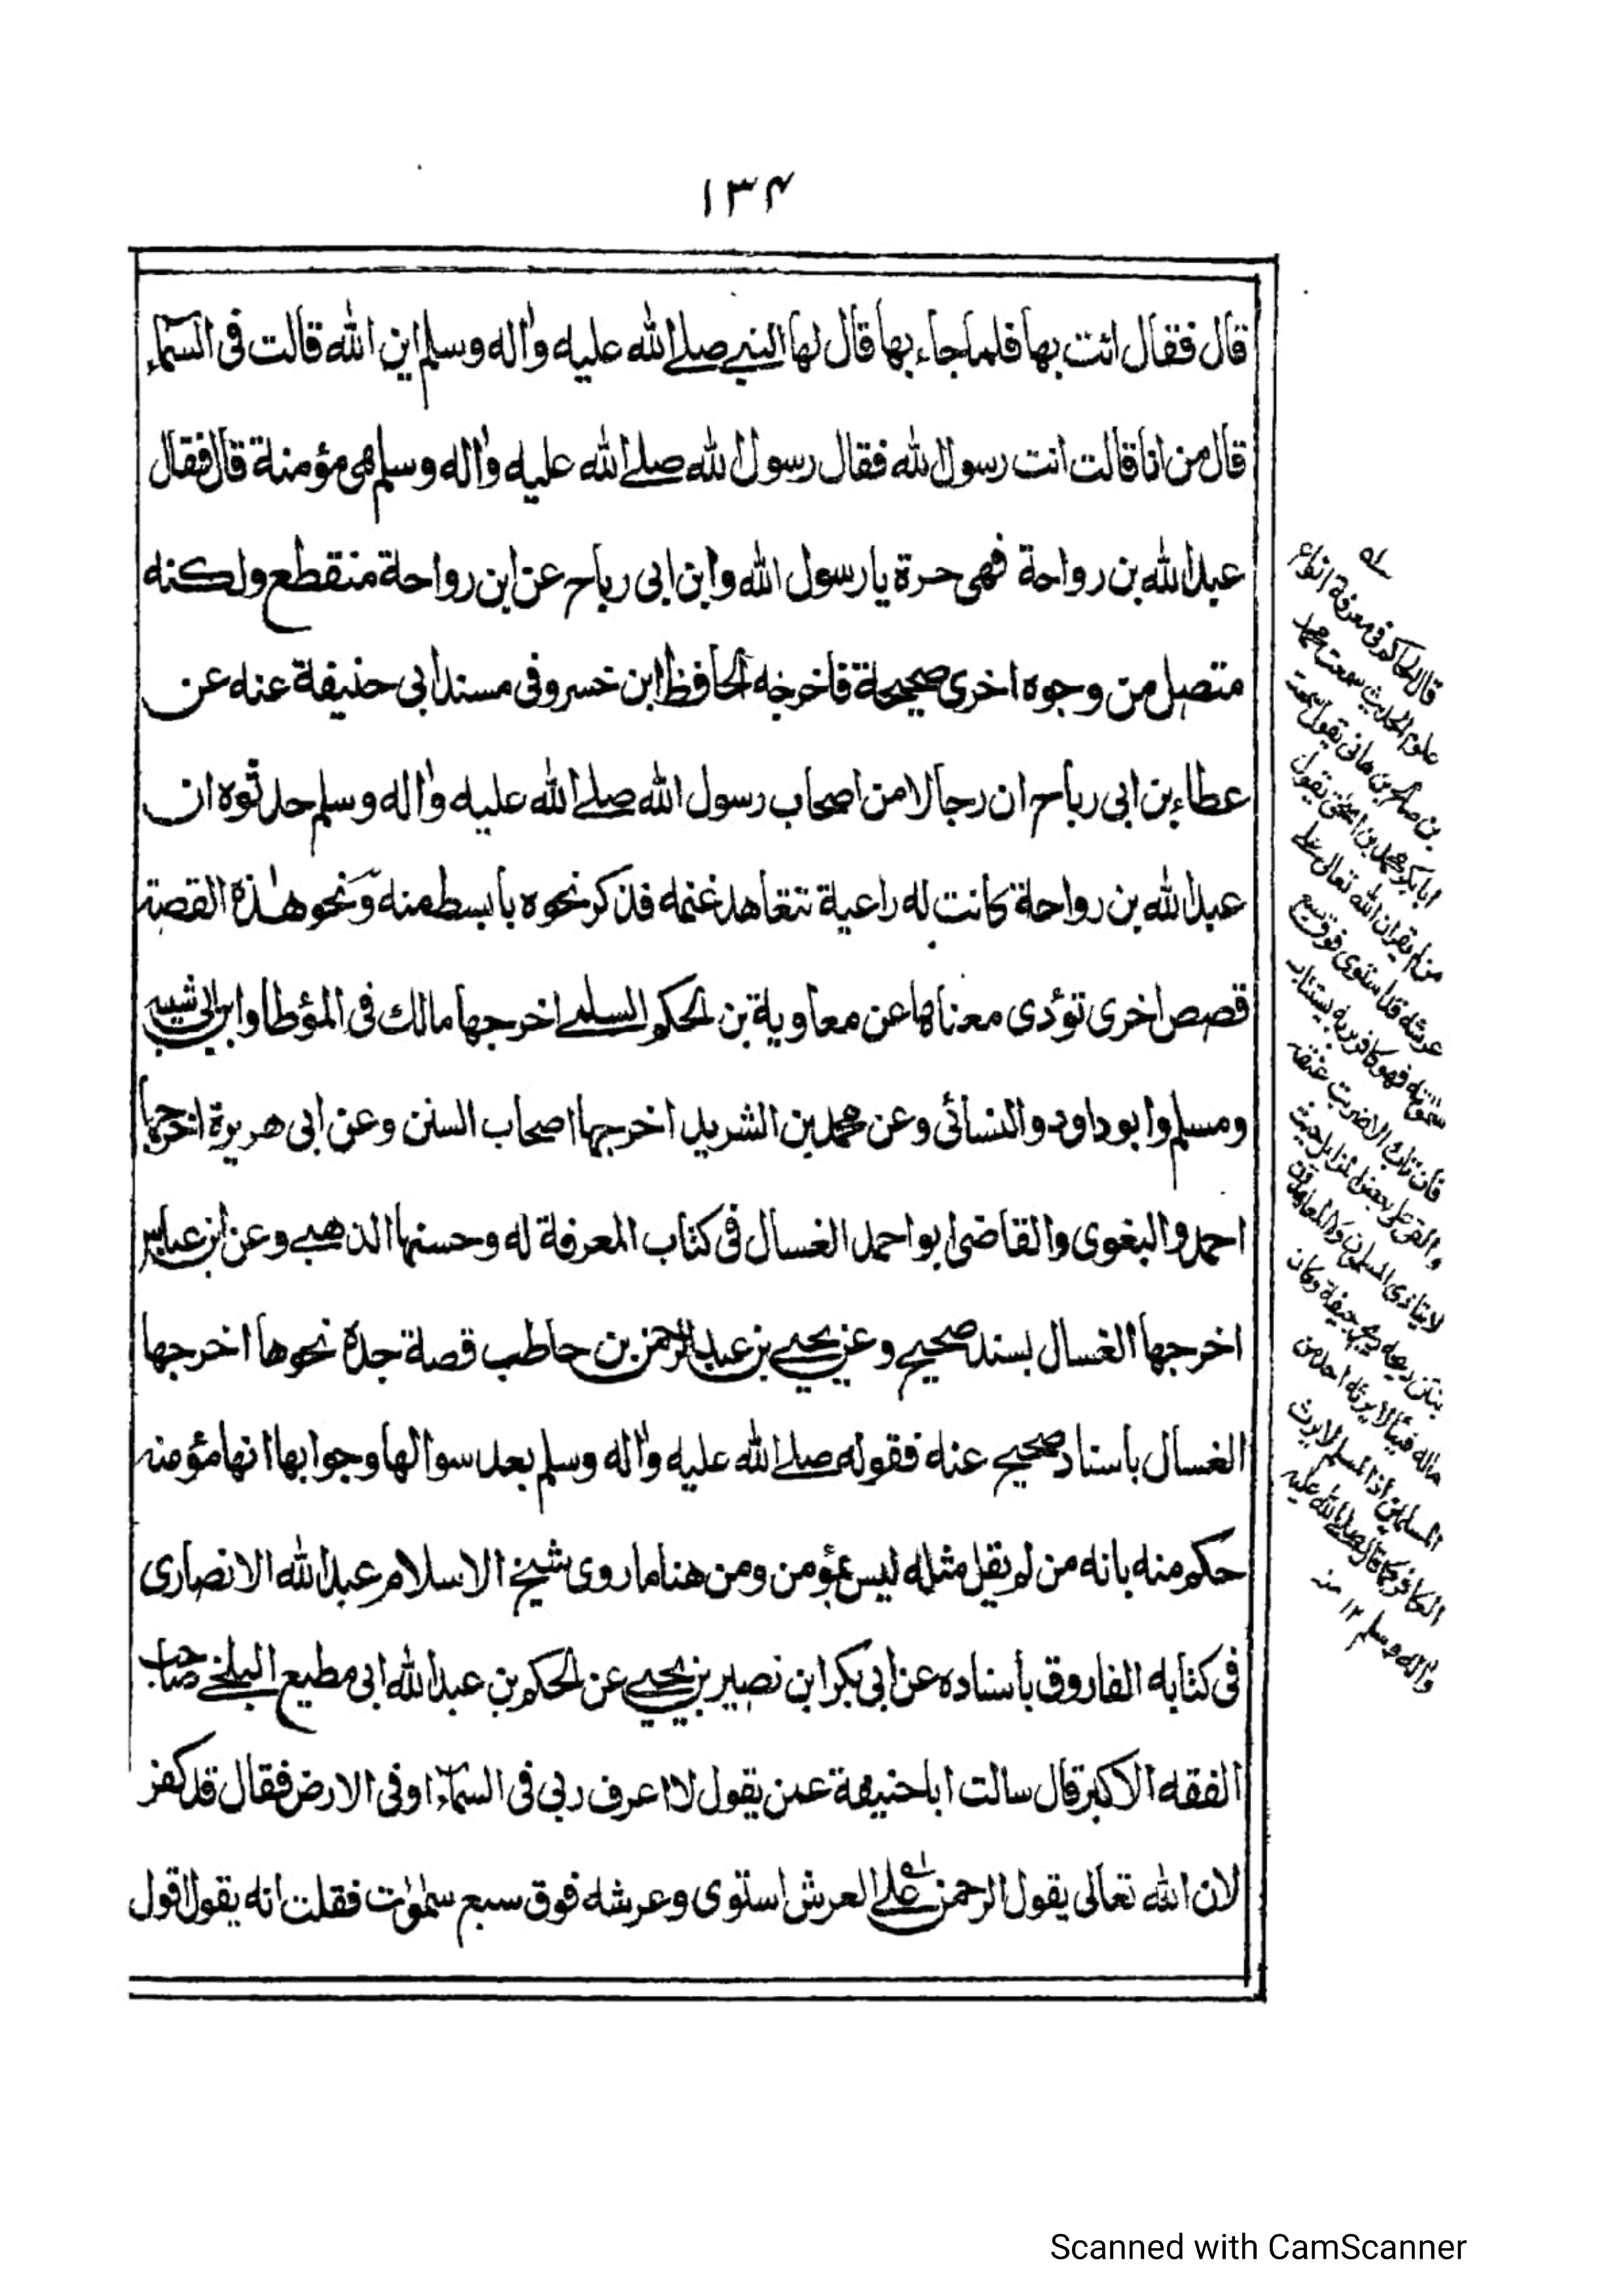 ۱۳۴
قال فقال ائت بها فلما جاء بها قال لها النبي صلے الله عليه واٰله وسلم اين الله قالت فى السماء
قال من انا قالت انت رسول الله فقال رسول الله صلے الله عليه واٰله وسلم هى مؤمنة قال فقال
عبد الله بن رواحة فهى حرة يا رسول الله وابن ابى رباح عن ابن رواحة منقطع ولكنه
متصل من وجوه اخرى صحيحة فاخرجه الحافظ ابن خسرو فى مسند ابى حنيفة عنه عن
عطاء بن ابى رباح ان رجالا من اصحاب رسول الله صلے الله عليه واٰله وسلم حدثوه ان
عبد الله بن رواحة كانت له راعية تتعاهد غنمه فذكر نحوه بابسط منه ونحو هٰذه القصة
قصص اخرى تؤدى معناها عن معاوية بن الحكم السلمے اخرجها مالك فى المؤطا وابن ابى شيبه
ومسلم وابو داود والنسائى وعن محمد بن الشريد اخرجها اصحاب السنن وعن ابى هريرة اخرجها
احمد والبغوى والقاضى ابو احمد الغسال فى كتاب المعرفة له وحسنها الذهبے وعن ابن عباس
اخرجها الغسال بسند صحيح وعن يحيے بن عبد الرحمن بن حاطب قصة جدة نحوها اخرجها
الغسال باسناد صحيح عنه فقوله صلے الله عليه واٰله وسلم بعد سوالها وجوابها انها مؤمنه
حكم منه بانه من لم يقل مثله ليس بمؤمن ومن هنا ما روى شيخ الاسلام عبد الله الانصارى
فى كتابه الفاروق باسناده عن ابى بكر ابن نصير بن يحيے عن الحكم بن عبد الله ابى مطيع البلخے صاحب
الفقه الاكبر قال سالت ابا حنيفة عمن يقول لا اعرف ربى فى السماء او فى الارض فقال قد كفر
لان الله تعالى يقول الرحمن علے العرش استوى وعرشه فوق سبع سمٰوٰت فقلت انه يقول اقول
قال الحاكم فى معرفة انواع
علوم الحديث سمعت محمد
بن صالح بن هانى يقول سمعت
ابا بكر محمد بن اسحٰق يقول
من لم يقر ان الله تعالى على
عرشه قد استوى فوق سبع
سمٰوٰته فهو كافر بربه يستتاب
فان تاب والا ضربت عنقه
والقى على بعض المزابل حيث
لا يتاذى المسلمون والمعاهدون
بنتن ريحة جيفة وكان
ماله فيئا لا يرثه احد من
المسلمين اذ المسلم لا يرث
الكافر كما قال صلے الله عليه
واٰله وسلم ۱۲ منه
Scanned with CamScanner